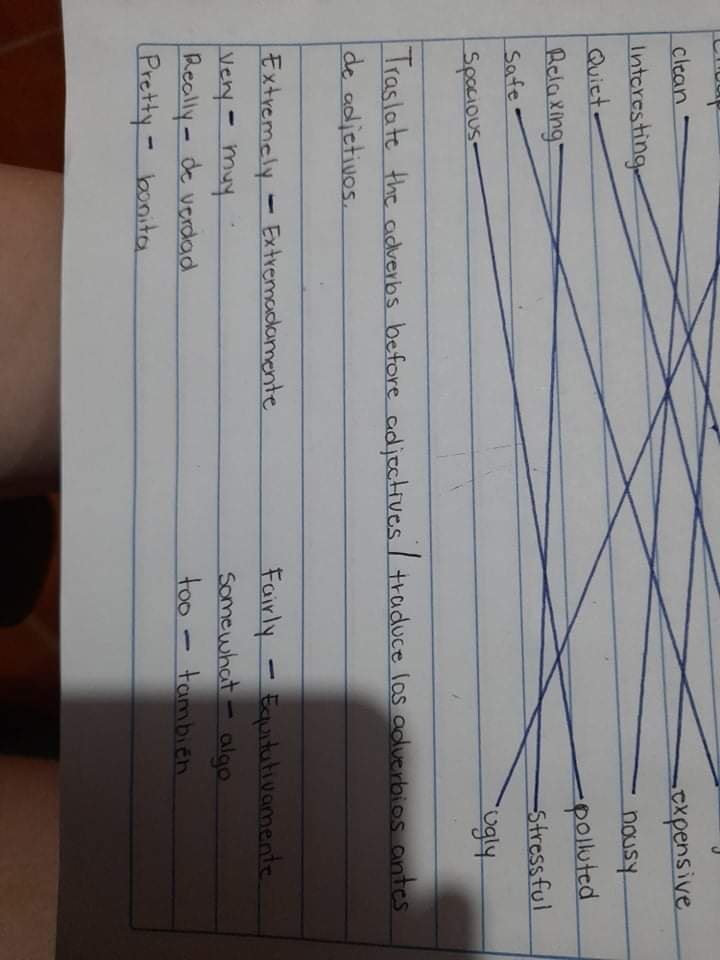 clean
Interesting expensive
Quiet nousy
Relaxing polluted
Safe Stressful
Spacious ugly
Traslate the adverbs before adjectives / traduce los adverbios antes
de adjetivos.
Extremely - Extremadamente Fairly - Equitativamente
very - muy somewhat - algo
Really - de verdad too - también
Pretty - bonita